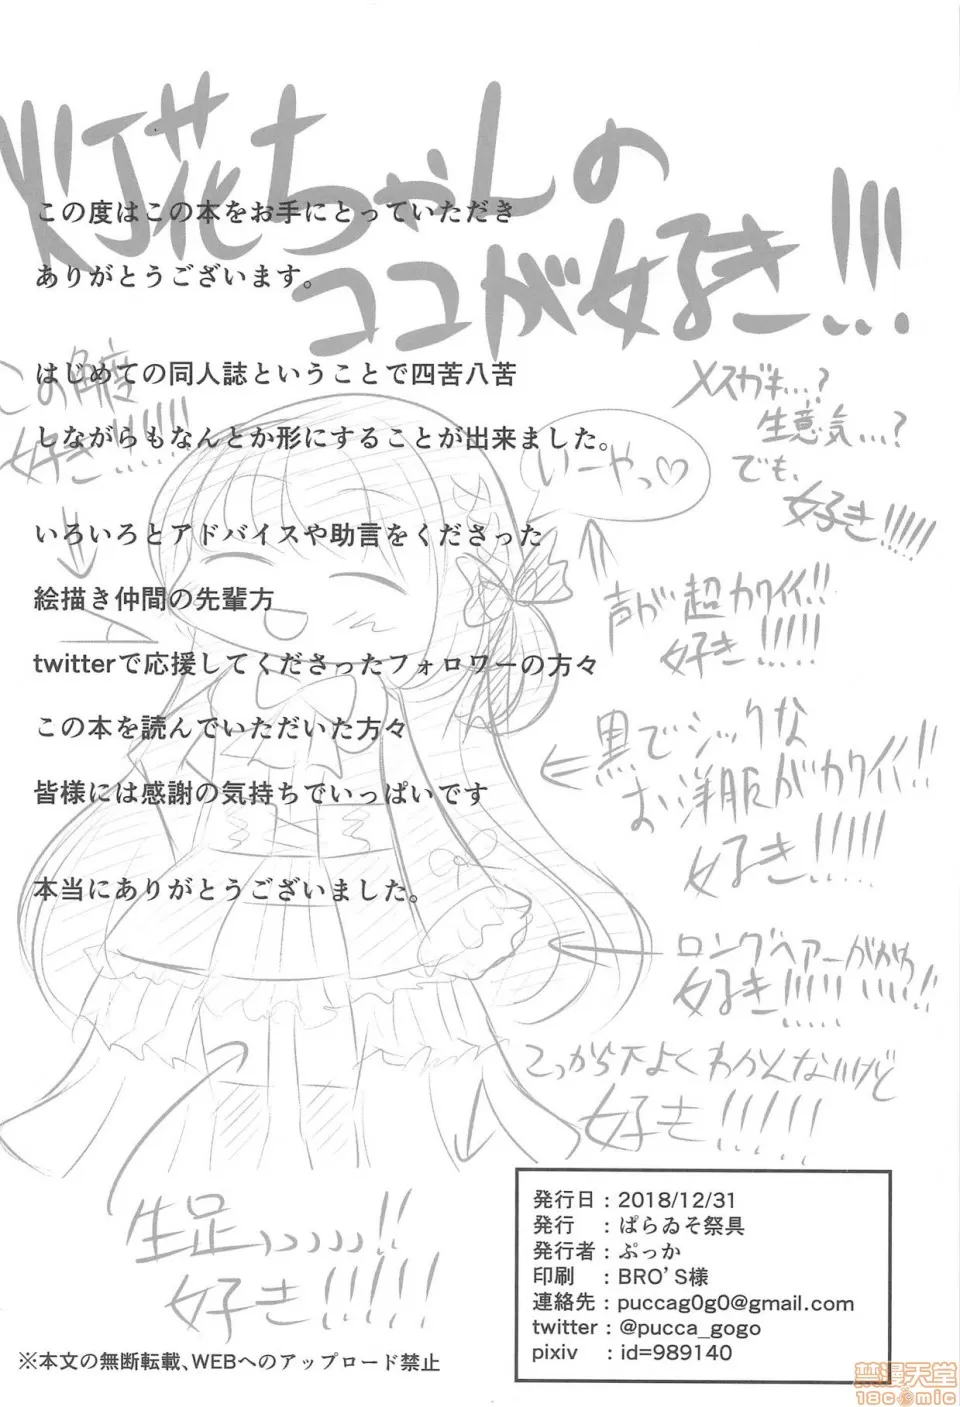 灯花ちゃんの
ココが好き!!!
この度はこの本をお手にとっていただき
ありがとうございます。
はじめての同人誌ということで四苦八苦
しながらもなんとか形にすることが出来ました。
いろいろとアドバイスや助言をくださった
絵描き仲間の先輩方
twitterで応援してくださったフォロワーの方々
この本を読んでいただいた方々
皆様には感謝の気持ちでいっぱいです
本当にありがとうございました。
この角度
好き!!!!!
いーやっ♡
メスガキ...?
生意気...?
でも、
好き!!!!!
声が超カワイイ!!
好き!!!!!
黒でシックな
お洋服がカワイイ!!
好き!!!!!
ロングヘアーがかわ
好き!!!!! いいい!!
こっから下よくわかんないけど
好き!!!!!
生足いいいい!!
好き!!!!!
発行日：2018/12/31
発行　：ぱらゐそ祭具
発行者：ぷっか
印刷　：BRO'S様
連絡先：puccag0g0@gmail.com
twitter：@pucca_gogo
pixiv　：id=989140
※本文の無断転載、WEBへのアップロード禁止
禁漫天堂
18comic.com